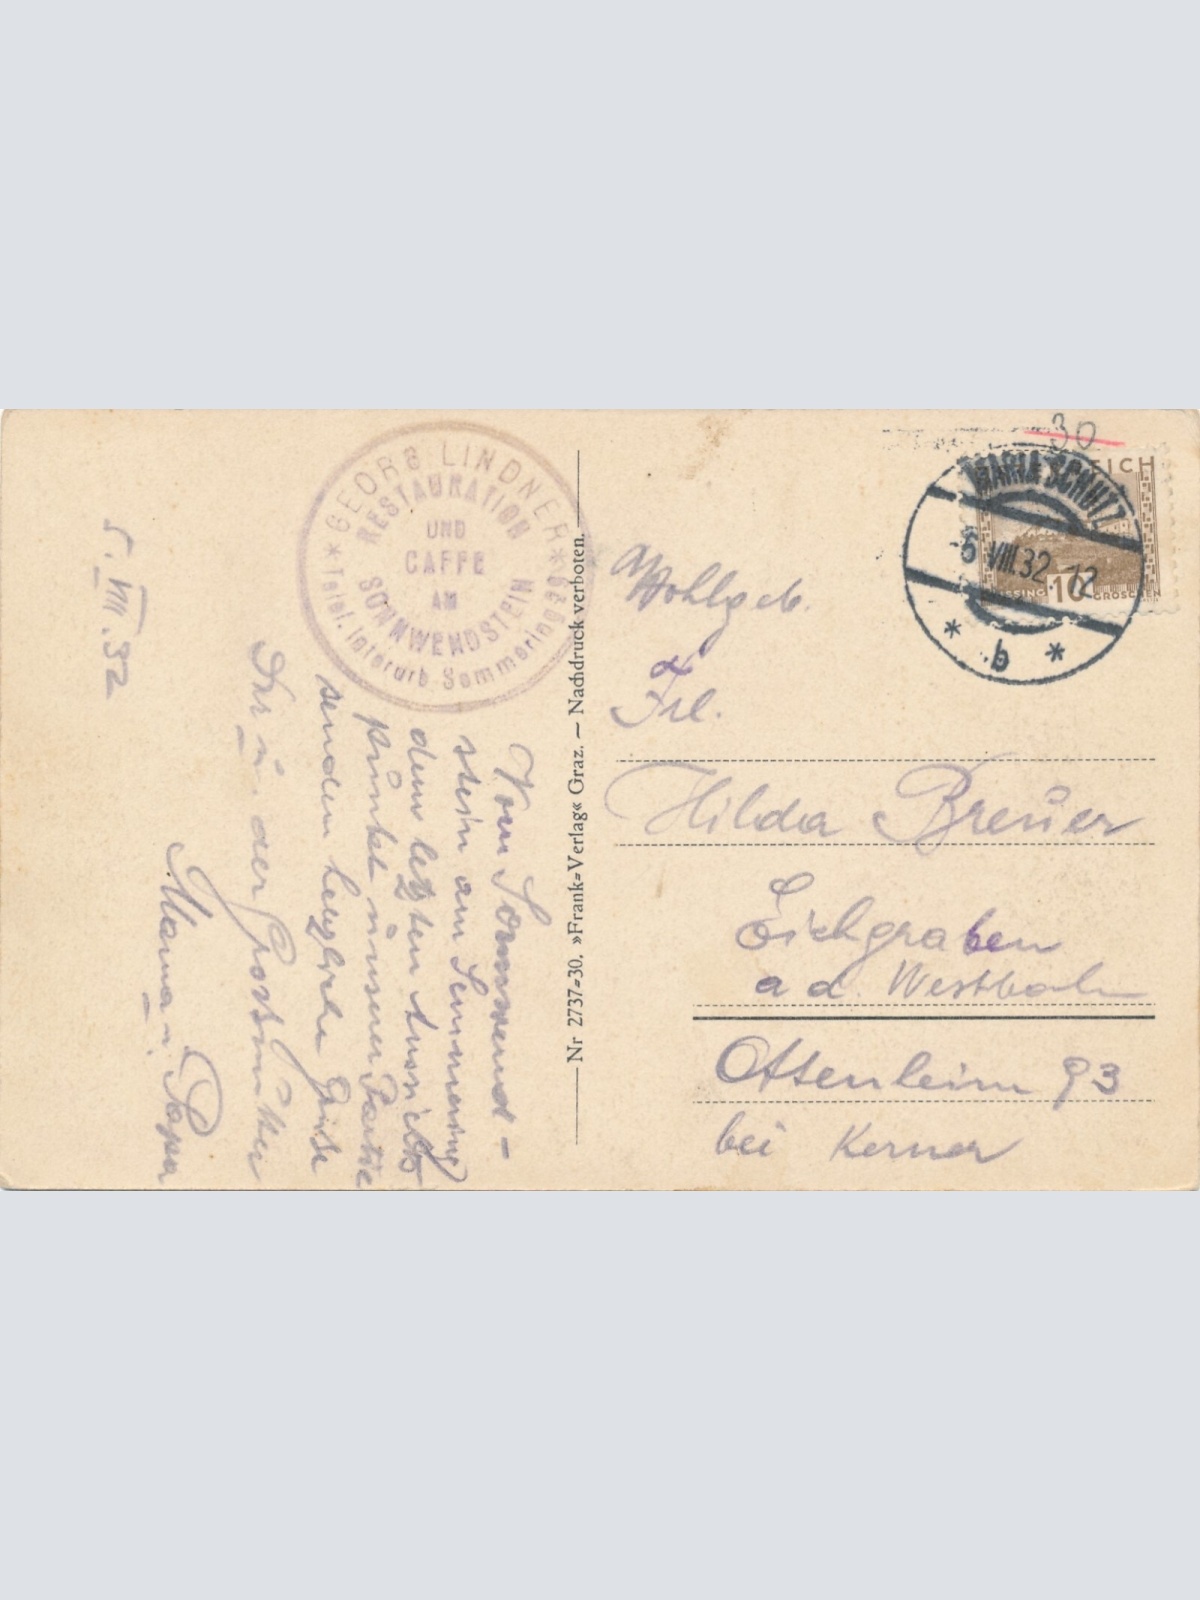 5. VIII. 32
GEORG LINDNER
RESTAURATION
UND
CAFFE
AM
SONNWENDSTEIN
Telef. Interurb Semmering
Vom Sonnwend-
stein am Semmering
dem letzten Aussichts
punkte unserer Partie
senden herzliche Grüße
Dir u. der Großmutter
Mama u. Papa
Nr 2737-30. »Frank-Verlag« Graz. — Nachdruck verboten.
30
MARIA SCHUTZ
-6 VIII.32 12
* b *
10
GROSCHEN
Wohlgeb.
Frl.
Hilda Breuer
Eichgraben
a d. Westbahn
Ottenheim 93
bei Kerner